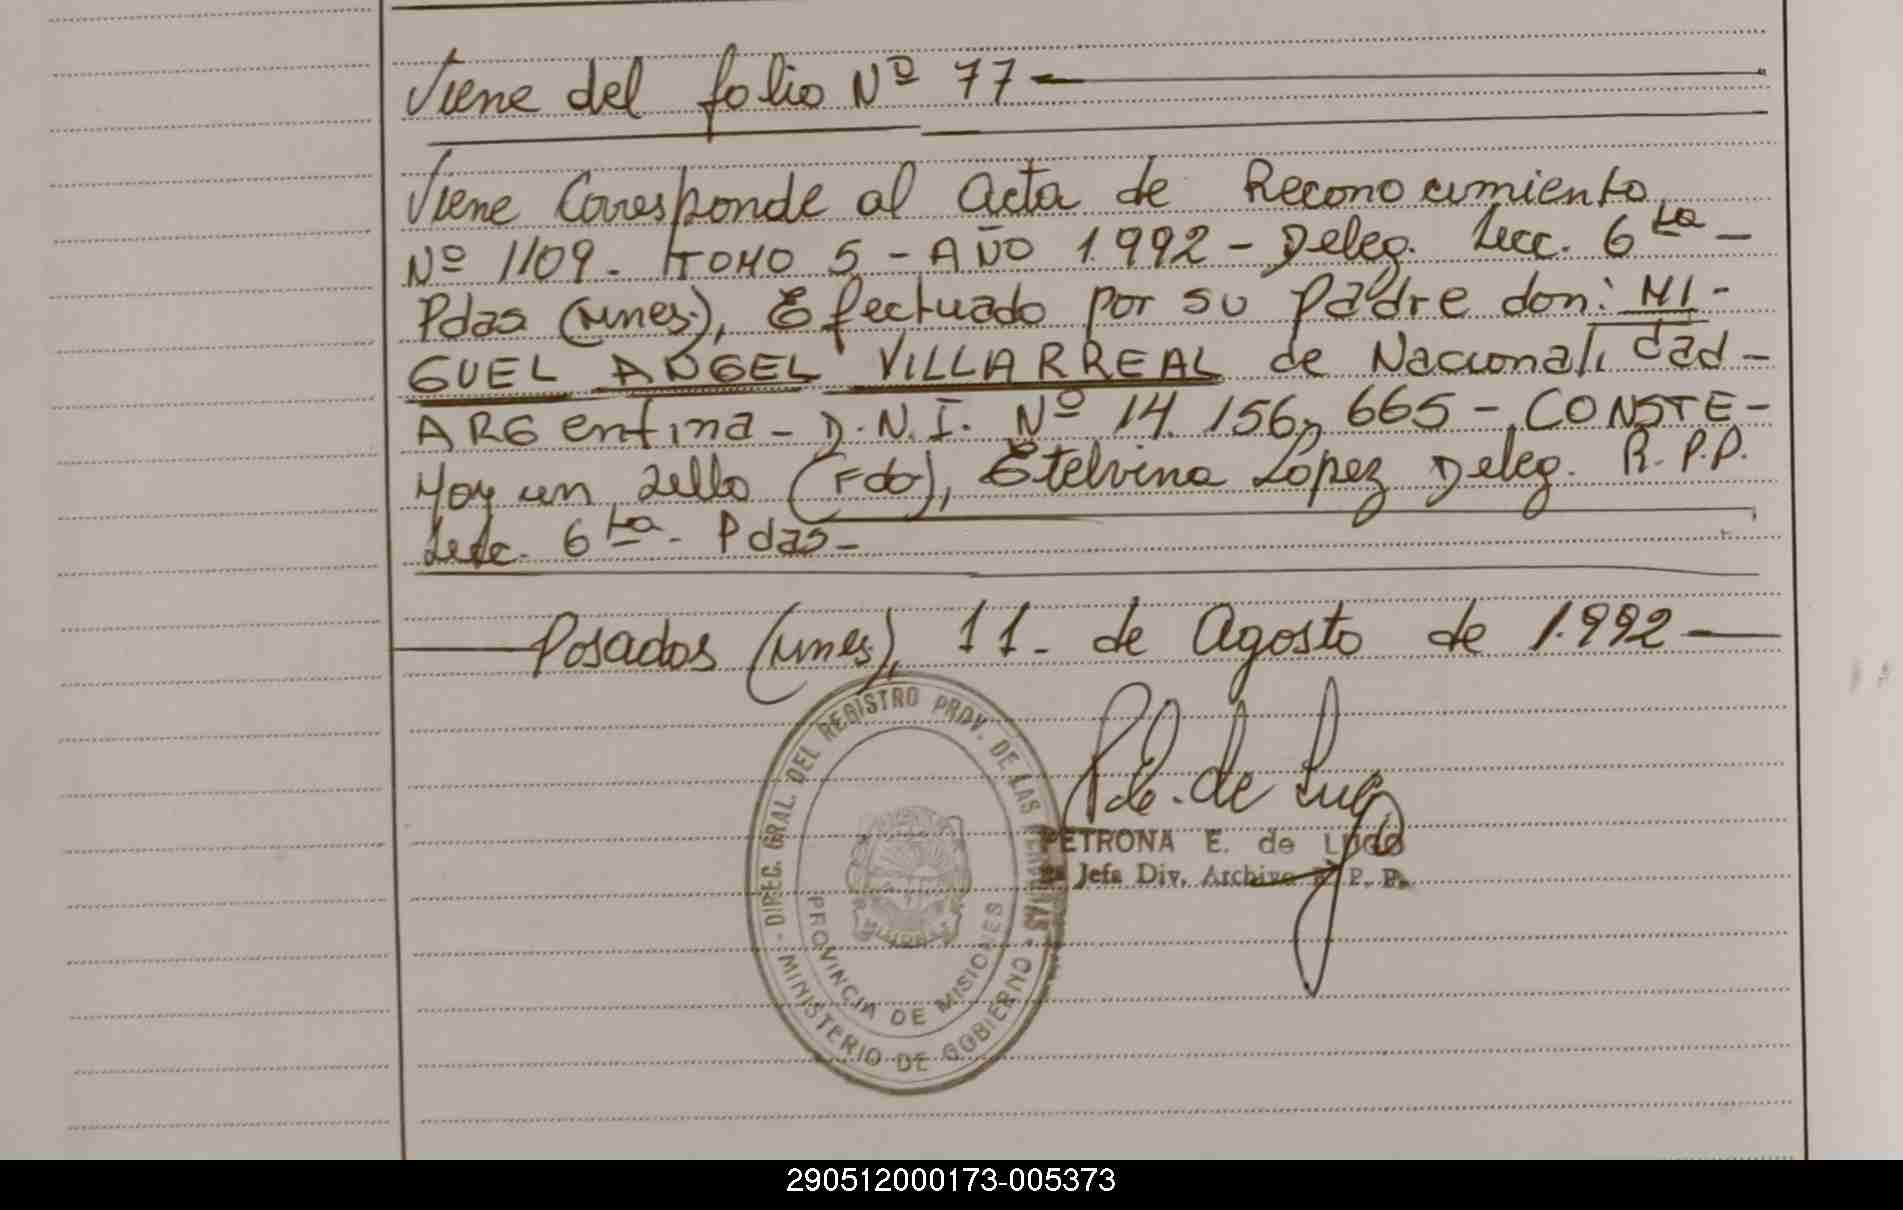 Viene del folio Nº 77-
Viene Corresponde al acta de Reconocimiento
Nº 1109. TOMO 5 - AÑO 1.992 - Deleg. Secc. 6ta -
Pdas (Mnes), Efectuado por su padre don: MI-
GUEL ANGEL VILLARREAL de Nacionalidad -
ARGentina - D.N.I. Nº 14.156.665 - CONSTE -
Hoy un sello (Fdo), Etelvina López Deleg. R.P.P.
Secc. 6ta - Pdas -
Posadas (Mnes), 11 - de Agosto de 1.992 -
DIREC. GRAL. DEL REGISTRO PROV. DE LAS PERSONAS
MINISTERIO DE GOBIERNO
PROVINCIA DE MISIONES
P. E. de Lugo
PETRONA E. de LUGO
Jefa Div. Archivo R. P. P.
290512000173-005373